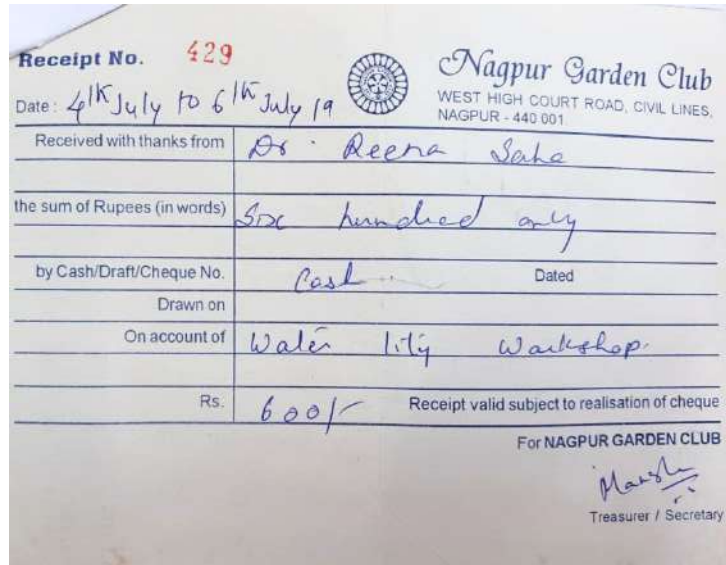 Receipt No. 429
Nagpur Garden Club
WEST HIGH COURT ROAD, CIVIL LINES,
NAGPUR - 440 001
Date: 4th July to 6th July 19
Received with thanks from Dr. Reena Saha
the sum of Rupees (in words) Six hundred only
by Cash/Draft/Cheque No. Cash Dated
Drawn on
On account of Water lity Workshop.
Rs. 600/- Receipt valid subject to realisation of cheque
For NAGPUR GARDEN CLUB
Treasurer / Secretary